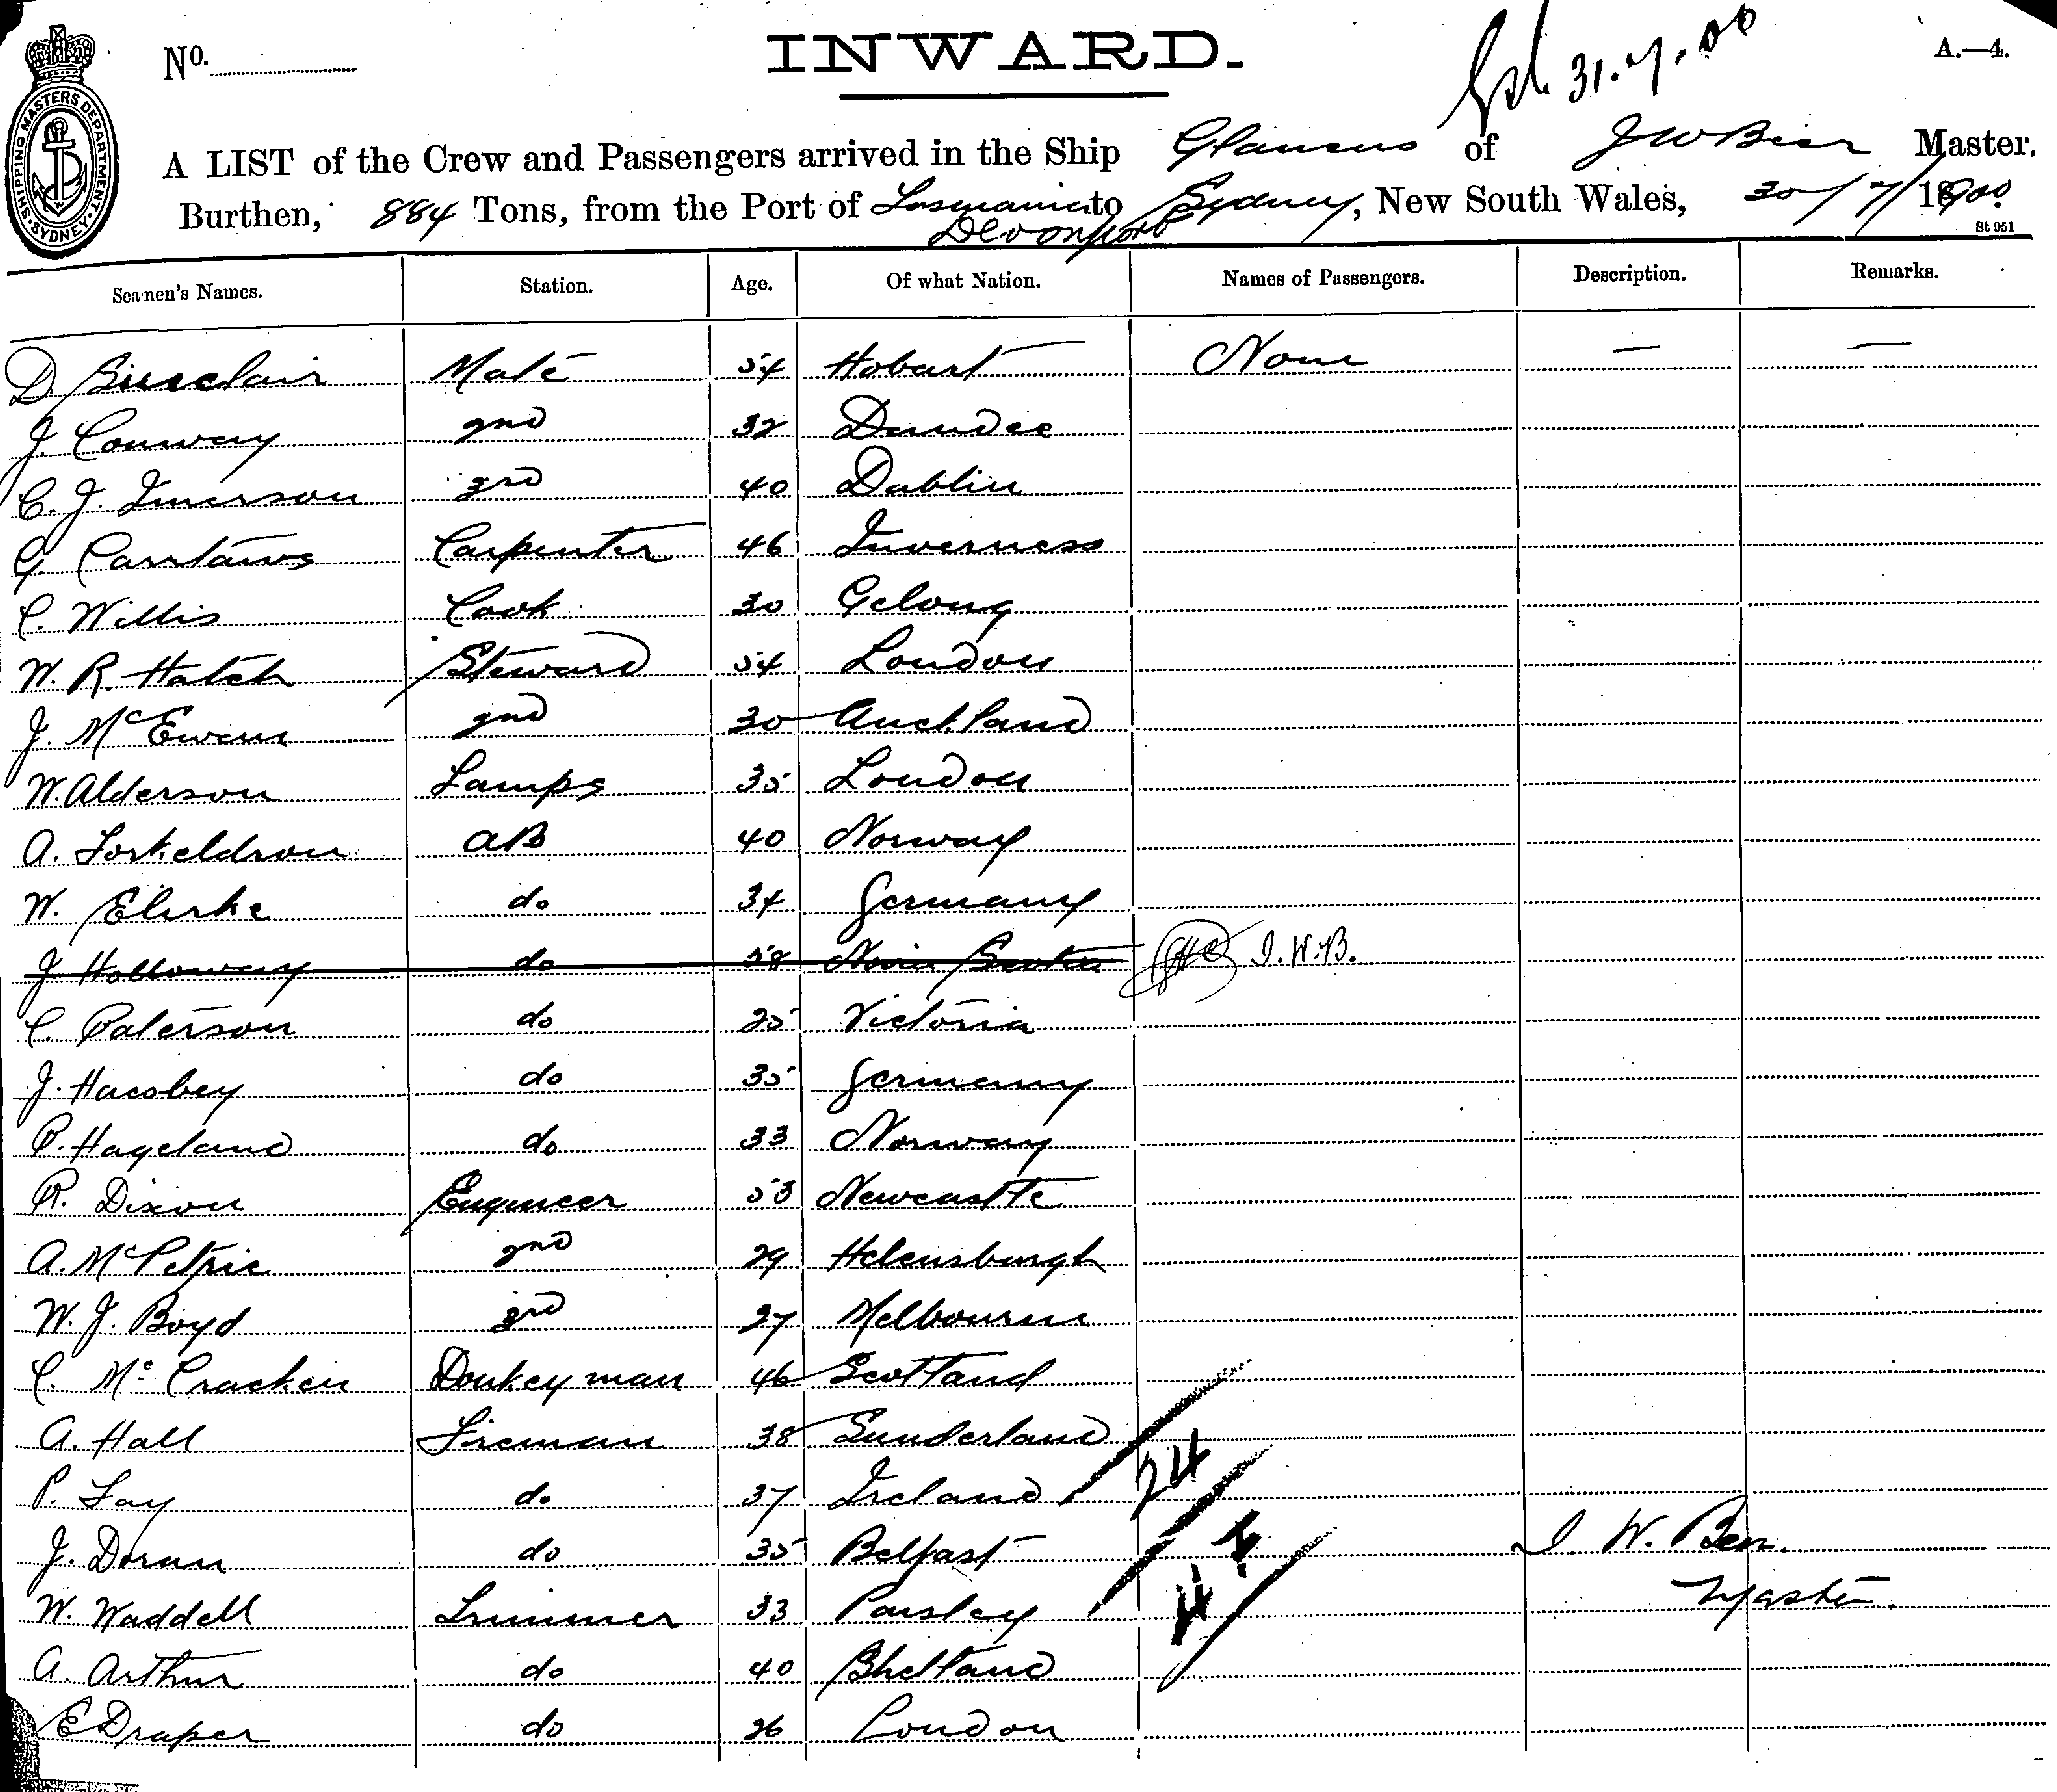 No.
INWARD.
31.7.00
A.—4.
SHIPPING MASTERS DEPARTMENT. SYDNEY.
A LIST of the Crew and Passengers arrived in the Ship Glaucus of J W Beer Master.
Burthen, 884 Tons, from the Port of Tasmania to Sydney, New South Wales, 30/7/1900
Devonport
St 951
Seamen's Names. Station. Age. Of what Nation. Names of Passengers. Description. Remarks.
D Sinclair Mate 54 Hobart None — —
J. Conway 2nd 32 Dundee
C. J. Imerson 3rd 40 Dublin
G. Carstairs Carpenter 46 Inverness
C. Willis Cook 30 Gelong
W. R. Hatch Steward 54 London
J. McEwen 2nd 30 Auckland
W. Alderson Lamps 35 London
A. Torkeldson AB 40 Norway
W. do 34 Germany
J Holloway do 58 Nova Scotia J.W.B.
C. Paterson do 25 Victoria
J. Hacobey do 35 Germany
P. Hageland do 33 Norway
R. Dixon Engineer 53 Newcastle
A. McPetrie 2nd 29 Helensburgh
W. J. Boyd 3rd 27 Melbourne
C. McCracken Donkeyman 46 Scotland
A. Hall Fireman 38 Sunderland
P. Fay do 37 Ireland 24
J. Doran do 35 Belfast J. W. Beer.
W. Waddell Trimmer 33 Paisley Master.
A. Arthur do 40 Shetland
E Draper do 26 London